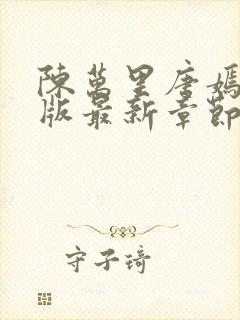 陳萬里唐嫣
版最新章節
守子琦